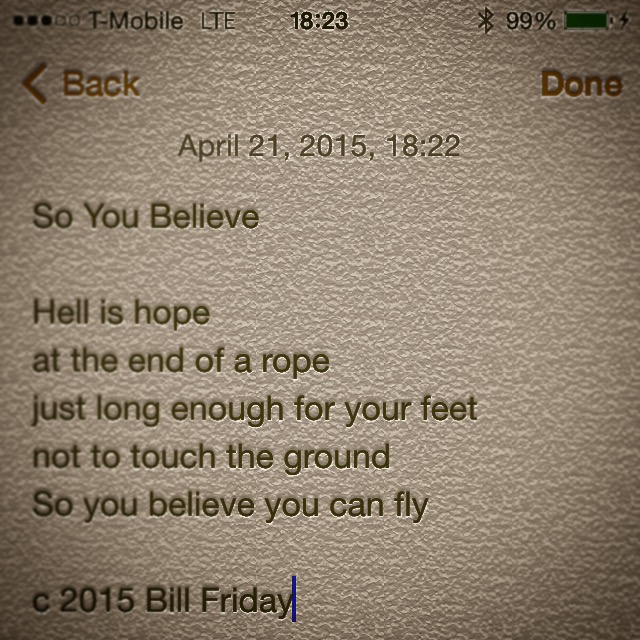 T-Mobile LTE 18:23 99%
Back Done
April 21, 2015, 18:22
So You Believe
Hell is hope
at the end of a rope
just long enough for your feet
not to touch the ground
So you believe you can fly
c 2015 Bill Friday